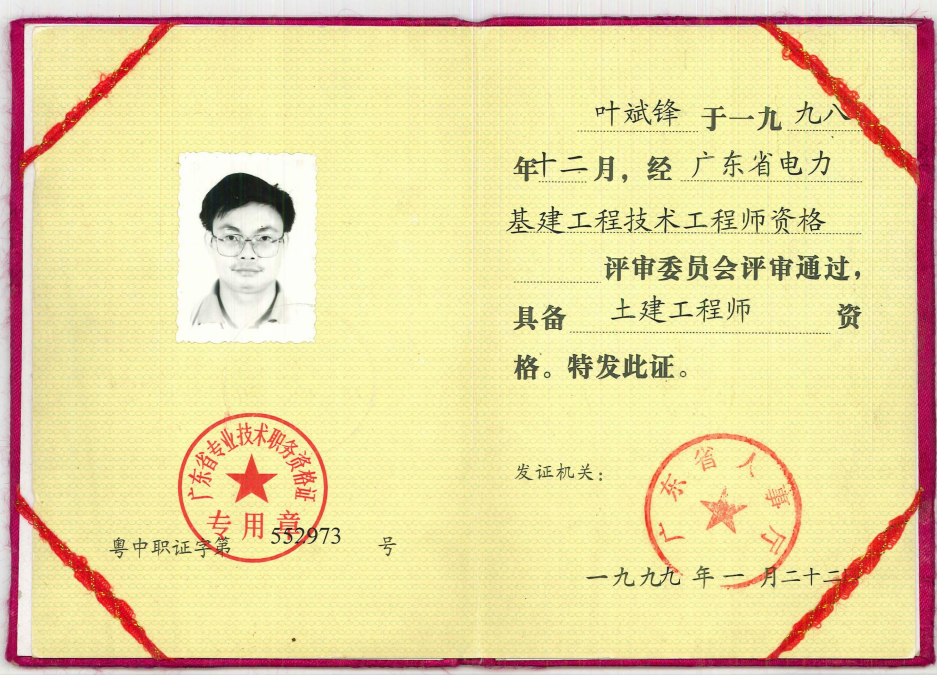 广东省专业技术职务资格证
专用章
粤中职证字第552973号
叶斌锋于一九九八
年十二月，经广东省电力
基建工程技术工程师资格
评审委员会评审通过，
具备土建工程师资
格。特发此证。
发证机关：
广东省人事厅
一九九九年一月二十二日